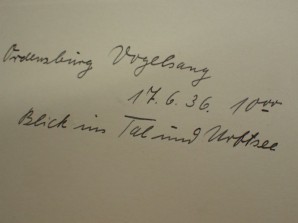 Ordensburg Vogelsang
17.6.36. 10⁰⁰
Blick ins Tal und Urftsee